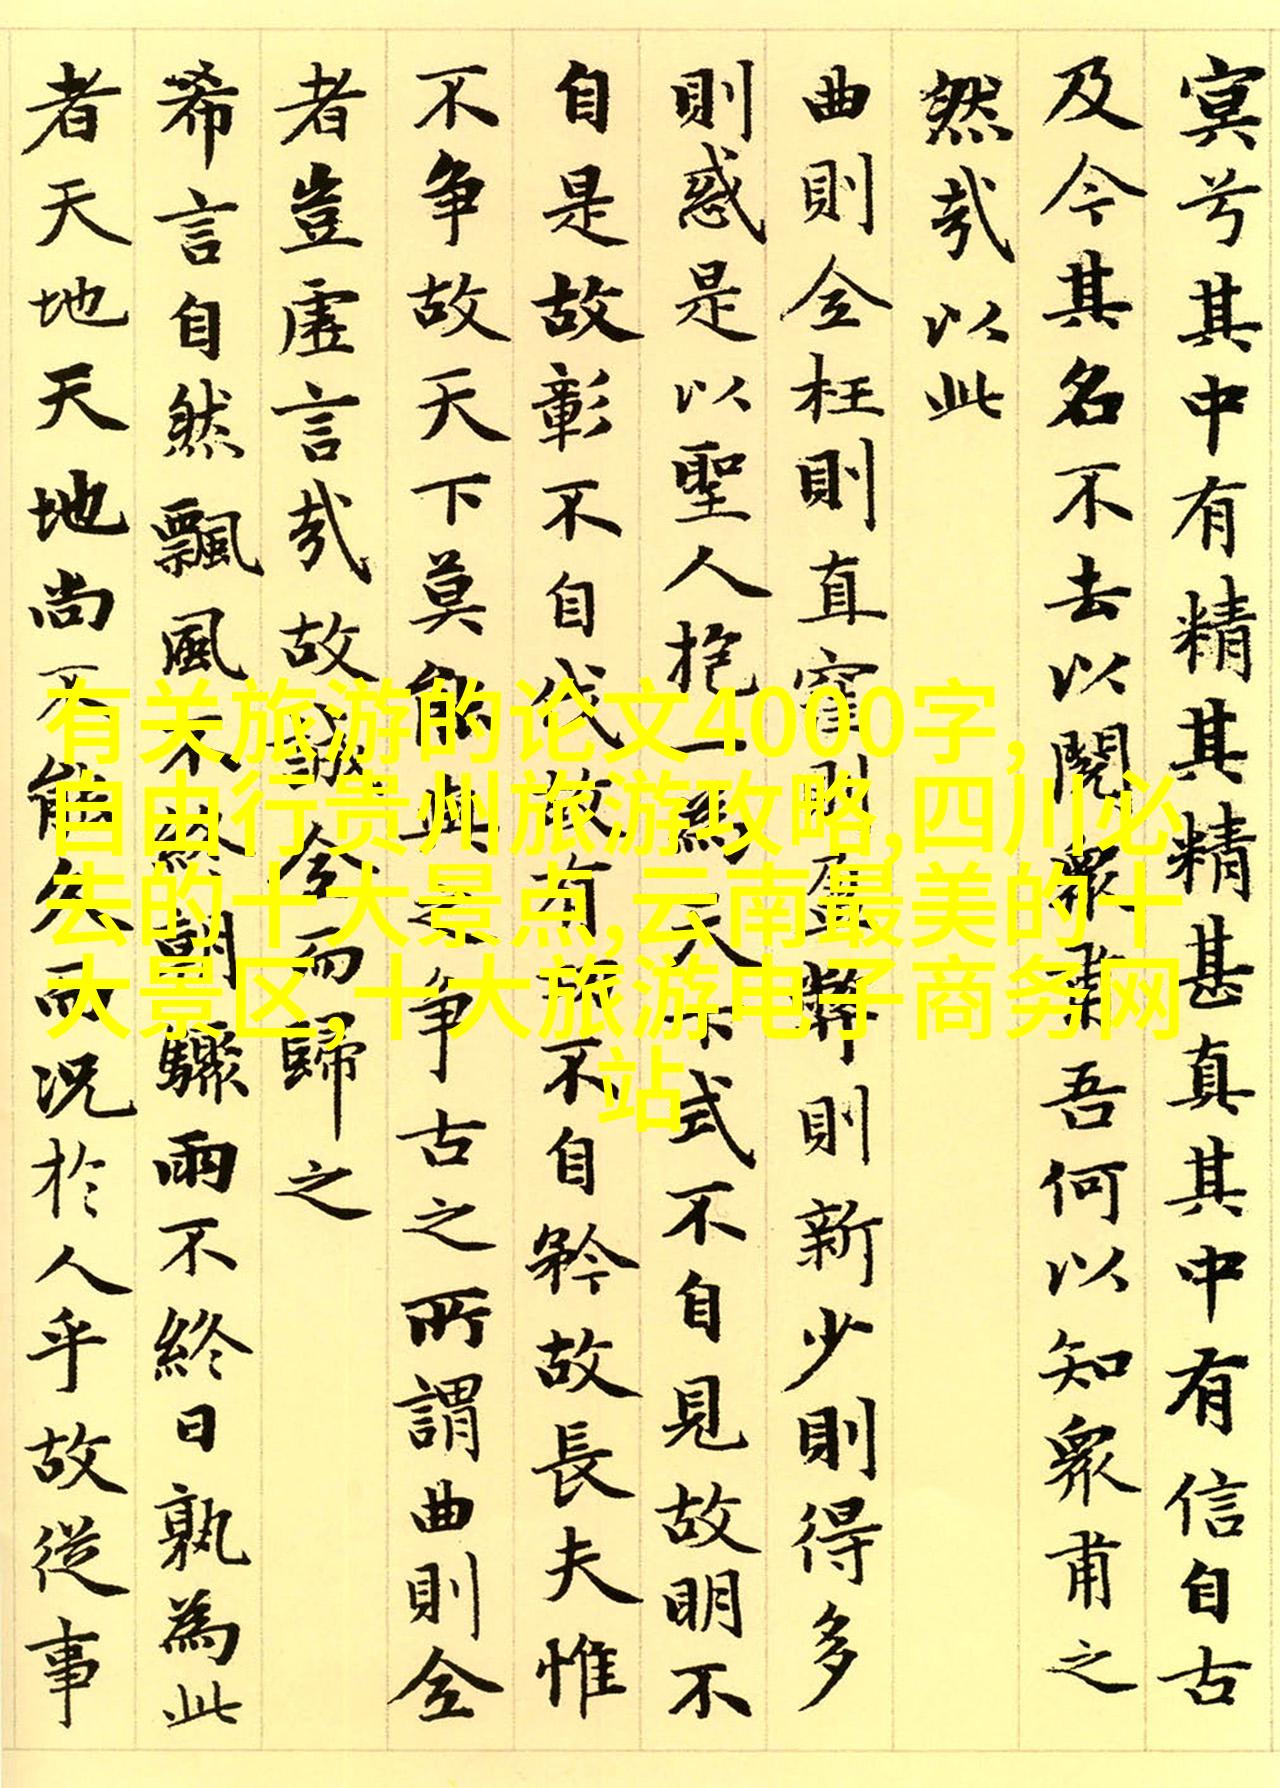 冥兮其中有精其精甚真其中有信自古
及今其名不去以閱衆甫吾何以知衆甫之
然哉以此
曲則全枉則直窪則盈弊則新少則得多
則惑是以聖人抱一為天下式不自見故明不
自是故彰不自伐故有功不自矜故長夫惟
不争故天下莫能與之争古之所謂曲則全
者豈虛言哉故誠全而歸之
希言自然飄風不終朝驟雨不終日孰為此
者天地天地尚不能久而況於人乎故從事
有关旅游的论文4000字,
自由行贵州旅游攻略,四川必
去的十大景点,云南最美的十
大景区,十大旅游电子商务网
站